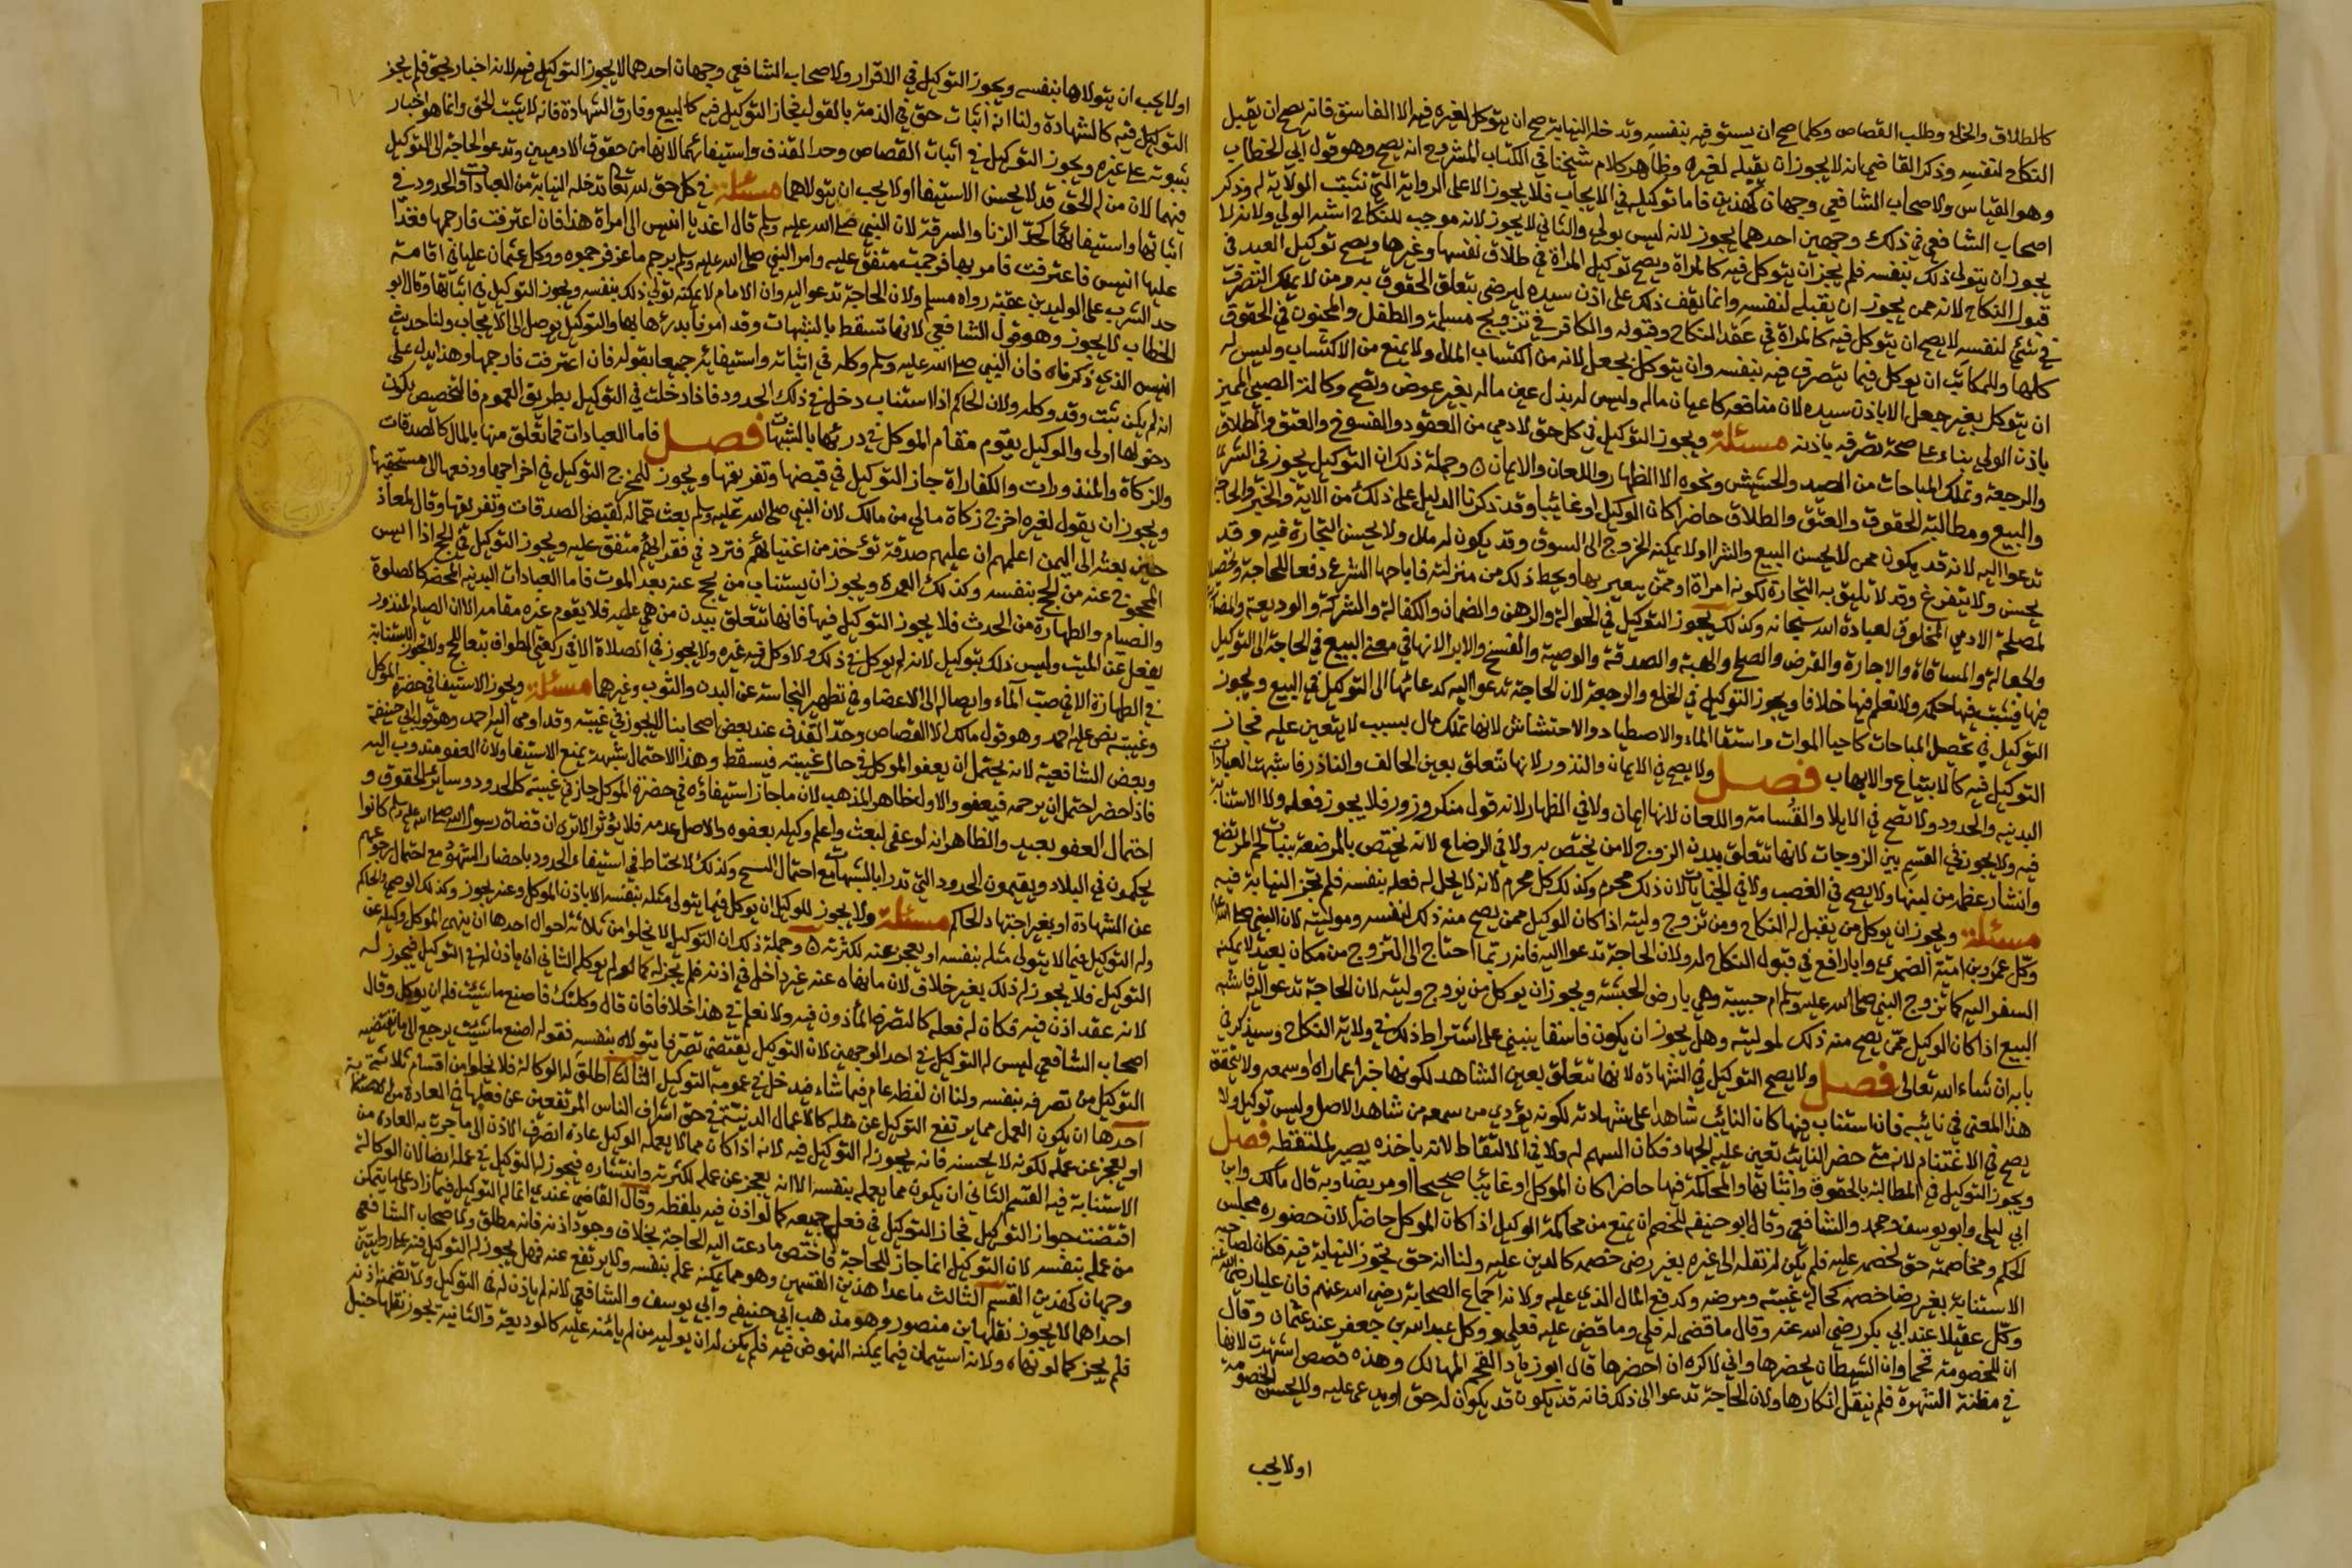 كالطلاق والخلع وطلب القصاص وكلما صح ان يستوفيه بنفسه وتدخله النيابة صح ان يتوكل لغيره فيه الا الفاسق فانه يصح ان يقبل
النكاح لنفسه وذكر القاضي انه لا يجوز ان يقبله لغيره وظاهر كلام شيخنا في الكتاب المشروح انه يصح وهو قول ابي الخطاب
وهو القياس ولاصحاب الشافعي وجهان كهذين فاما توكيله في الايجاب فلا يجوز الا على الرواية التي تثبت الولاية له وذكر
اصحاب الشافعي في ذلك وجهين احدهما يجوز لانه ليس بولي والثاني لا يجوز لانه موجب للنكاح اشبه الولي ولانه لا
يجوز ان يتولى ذلك بنفسه فلم يجز ان يتوكل فيه كالمراة ويصح توكيل المراة في طلاق نفسها وغيرها ويصح توكيل العبد في
قبول النكاح لانه ممن يجوز ان يقبله لنفسه وانما يقف ذلك على اذن سيده ليرضى بتعلق الحقوق به ومن لا يملك التصرف
في شيء لنفسه لا يصح ان يتوكل فيه كالمراة في عقد النكاح وقبوله والكافر في تزويج مسلمة والطفل والمجنون في الحقوق
كلها وللمكاتب ان يوكل فيما يتصرف فيه بنفسه وان يتوكل بجعل لانه من اكتساب المال ولا يمنع من الاكتساب وليس له
ان يتوكل بغير جعل الا باذن سيده لان منافعه كاعيان ماله وليس له بذل عين ماله بغير عوض وتصح وكالة الصبي المميز
باذن الولي بناء على صحة تصرفه باذنه مسئلة ويجوز التوكيل في كل حق لادمي من العقود والفسوخ والعتق والطلاق
والرجعة وتملك المباحات من الصيد والحشيش ونحوه الا الظهار واللعان والايمان وجملة ذلك ان التوكيل يجوز في الشراء
والبيع ومطالبة الحقوق والعتق والطلاق حاضرا كان الوكيل او غائبا وقد ذكرنا الدليل على ذلك من الاية والخبر والحاجة
تدعوا اليه لانه قد يكون ممن لا يحسن البيع والشرا او لا يمكنه الخروج الى السوق وقد يكون له مال ولا يحسن التجارة فيه وقد
يحسن ولا يتفرغ وقد لا تليق به التجارة لكونه امراة او ممن يتعير بها ويحط ذلك من منزلته فاباحها الشرع دفعا للحاجة وتحصيلا
لمصلحة الادمي المخلوق لعبادة الله سبحانه وكذلك يجوز التوكيل في الحوالة والرهن والضمان والكفالة والشركة والوديعة والمضاربة
والجعالة والمساقاة والاجارة والقرض والصلح والهبة والصدقة والوصية والفسخ والابرا لانها في معنى البيع في الحاجة الى التوكيل
فيها فيثبت فيها حكمه ولا نعلم فيها خلافا ويجوز التوكيل في الخلع والرجعة لان الحاجة تدعوا اليه كدعائها الى التوكيل في البيع ويجوز
التوكيل في تحصيل المباحات كاحيا الموات واستقا الماء والاصطياد والاحتشاش لانها تملك مال بسبب لا يتعين عليه فجاز
التوكيل فيه كالابتياع والايهاب فصل ولا يصح في الايمان والنذور لانها تتعلق بعين الحالف والناذر فاشبهت العبادات
البدنيه والحدود ولا تصح في الايلا والقسامة واللعان لانها ايمان ولا في الظهار لانه قول منكر وزور فلا يجوز فعله ولا الاستنابة
فيه ولا يجوز في القسم بين الزوجات لانها تتعلق ببدن الزوج لامر يختص به ولا في الرضاع لانه يختص بالمرضعة بنبات لحم المرتضع
وانشار عظمه من لبنها ولا يصح في الغصب ولا في الجنايات لان ذلك محرم وكذلك كل محرم لانه لا يحل له فعله بنفسه فلم تجز النيابة فيه
مسئلة ويجوز ان يوكل من يقبل له النكاح ومن تزوج وليته اذا كان الوكيل ممن يصح منه ذلك لنفسه وموليته لان النبي صلى الله عليه
وكل عمرو بن امية الضمري وابا رافع في قبول النكاح له ولان الحاجة تدعوا اليه فانه ربما احتاج الى التزوج من مكان بعيد لا يمكنه
السفر اليه كما تزوج النبي صلى الله عليه وسلم ام حبيبة وهي بارض الحبشة ويجوز ان يوكل من يزوج وليته لان الحاجة تدعوا اليه فاشبه
البيع اذا كان الوكيل ممن يصح منه ذلك لموليته وهل يجوز ان يكون فاسقا ينبني على اشتراط ذلك في ولاية النكاح وسيذكر في
بابه ان شاء الله تعالى فصل ولا يصح التوكيل في الشهادة لانها تتعلق بعين الشاهد لكونها خبرا عما راه او سمعه ولا يتحقق
هذا المعنى في نائبه فان استناب فيها كان النائب شاهدا على شهادته لكونه يؤدي من سمعه من شاهد الاصل وليس توكيل ولا
يصح في الاغتنام لانه متى حضر النائب تعين عليه الجهاد فكان السهم له ولا في الالتقاط لانه باخذه يصير لملتقطه فصل
ويجوز التوكيل في المطالبة بالحقوق واثباتها والمحاكمة فيها حاضرا كان الموكل او غائبا صحيحا او مريضا وبه قال مالك وابن
ابي ليلى وابو يوسف ومحمد والشافعي وقال ابو حنيفه للخصم ان يمنع من محاكمة الوكيل اذا كان الموكل حاضرا لان حضوره مجلس
الحكم ومخاصمته حق لخصمه عليه فلم يكن له نقله الى غيره بغير رضى خصمه كالدين عليه ولنا انه حق تجوز النيابة فيه فكان لصاحبه
الاستنابة بغير رضا خصمه كحالة غيبته ومرضه وكدفع المال الذي عليه ولانه اجماع الصحابة رضي الله عنهم فان عليا رضي الله عنه
وكل عقيلا عند ابي بكر رضي الله عنه وقال ما قضي له فلي وما قضي عليه فعلي ووكل عبد الله بن جعفر عند عثمان وقال
ان للخصومة قحما وان الشيطان يحضرها واني لاكره ان احضرها قال ابو زياد القحم المهالك وهذه قصص اشتهرت لانها
في مظنة الشهرة فلم ينقل انكارها ولان الحاجة تدعوا الى ذلك فانه قد يكون قد يكون له حق او يدعى عليه ولا يحسن الخصومة
اولا يحب
اولا يحب ان يتولاها بنفسه ويجوز التوكيل في الاقرار ولاصحاب الشافعي وجهان احدهما لا يجوز التوكيل فيه لانه اخبار بحق فلم يجز
التوكيل فيه كالشهادة ولنا انه اثبات حق في الذمة بالقول فجاز التوكيل فيه كالبيع وفارق الشهادة فانه لا يثبت الحق وانما هو اخبار
بثبوته على غيره ويجوز التوكيل في اثبات القصاص وحد القذف واستيفائهما لانها من حقوق الادميين وتدعوا الحاجة الى التوكيل
فيهما لان من له الحق قد لا يحسن الاستيفا او لا يحب ان يتولاهما مسئلة في كل حق لله تعالى تدخله النيابة من العبادات والحدود في
اثباتها واستيفائها كحد الزنا والسرقة لان النبي صلى الله عليه وسلم قال اغد يا انيس الى امراة هذا فان اعترفت فارجمها فغدا
عليها انيس فاعترفت فامر بها فرجمت متفق عليه وامر النبي صلى الله عليه وسلم برجم ماعز فرجموه ووكل عثمان عليا في اقامة
حد الشرب على الوليد بن عقبة رواه مسلم ولان الحاجة تدعوا اليه وان الامام لا يمكنه تولي ذلك بنفسه ويجوز التوكيل في اثباتها وقال ابو
الخطاب لا يجوز وهو قول الشافعي لانها تسقط بالشبهات وقد امرنا بدرئها بها والتوكيل يوصل الى الايجاب ولنا حديث
انيس الذي ذكرناه فان النبي صلى الله عليه وسلم وكله في اثباته واستيفائه جميعا بقوله فان اعترفت فارجمها وهذا يدل على
انه لم يكن ثبت وقد وكله ولان الحاكم اذا استناب دخل في ذلك الحدود فاذا دخلت في التوكيل بطريق العموم فالتخصيص يكون
دخولها اولى والوكيل يقوم مقام الموكل في درئها بالشبهات فصل فاما العبادات فما تعلق منها بالمال كالصدقات
والزكاة والمنذورات والكفاراة جاز التوكيل في قبضها وتفريقها ويجوز للمخرج التوكيل في اخراجها ودفعها الى مستحقيها
ويجوز ان يقول لغيره اخرج زكاة مالي من مالك لان النبي صلى الله عليه وسلم بعث عماله لقبض الصدقات وتفريقها وقال لمعاذ
حين بعثه الى اليمن اعلمهم ان عليهم صدقة تؤخذ من اغنيائهم فترد في فقرائهم متفق عليه ويجوز التوكيل في الحج اذا ايس
المحجوج عنه من الحج بنفسه وكذلك العمرة ويجوز ان يستناب من يحج عنه بعد الموت فاما العبادات البدنيه المحضه كالصلوة
والصيام والطهارة من الحدث فلا يجوز التوكيل فيها فانها تتعلق ببدن من هي عليه فلا يقوم غيره مقامه الا ان الصيام المنذور
يفعل عن الميت وليس ذلك بتوكيل لانه لم يوكل في ذلك ولا وكل فيه غيره ولا يجوز في الصلاة الا في ركعتي الطواف تبعا للحج ولا تجوز الاستنابة
في الطهارة الا في صب الماء وايصاله الى الاعضا وفي تطهير النجاسة عن البدن والثوب وغيرهما مسئلة ويجوز الاستيفا في حضرة الموكل
وغيبته نص عليه احمد وهو قول مالك الا القصاص وحد القذف عند بعض اصحابنا لا يجوز في غيبته وقد اومى اليه احمد وهو قول ابي حنيفة
وبعض الشافعية لانه يحتمل ان يعفو الموكل في حال غيبته فيسقط وهذا الاحتمال شبهة يمنع الاستيفا ولان العفو مندوب اليه
فاذا حضر احتمل ان يرحمه فيعفو والاول ظاهر المذهب لان ما جاز استيفاؤه في حضرة الموكل جاز في غيبته كالحدود وسائر الحقوق و
احتمال العفو بعيد والظاهر انه لو عفى لبعث واعلم وكيله بعفوه والاصل عدمه فلا يؤثر الا ترى ان قضاة رسول الله صلى الله عليه وسلم كانوا
يحكمون في البلاد ويقيمون الحدود التي تدرا بالشبهات مع احتمال النسخ وكذلك لا يحتاط في استيفاء الحدود باحضار الشهود مع احتمال رجوعهم
عن الشهادة او يغير اجتهاد الحاكم مسئلة ولا يجوز للوكيل ان يوكل فيما يتولى مثله بنفسه الا باذن الموكل وعنه يجوز وكذلك الوصي والحاكم
وله التوكيل فيما لا يتولى مثله بنفسه او يعجز عنه لكثرته وجملة ذلك ان التوكيل لا يخلوا من ثلاثة احوال احدها ان ينهى الموكل وكيله عن
التوكيل فلا يجوز له ذلك بغير خلاف لان ما نهاه عنه غير داخل في اذنه فلم يجز له كما لو لم يوكله الثاني ان ياذن له في التوكيل فيجوز له
لانه عقد اذن فيه فكان له فعله كالتصرف الماذون فيه ولا نعلم في هذا خلافا فان قال وكلتك فاصنع ما شئت فله ان يوكل وقال
اصحاب الشافعي ليس له التوكيل في احد الوجهين لان التوكيل يقتضي تصرفا يتولاه بنفسه فقوله اصنع ما شئت يرجع الى ما يقتضيه
التوكيل من تصرفه بنفسه ولنا ان لفظه عام فيما شاء فيدخل في عمومه التوكيل الثالث اطلق له الوكالة فلا يخلوا من اقسام ثلاثة
احدها ان يكون العمل مما يرتفع التوكيل عن مثله كالاعمال الدنيئة في حق اشراف الناس المرتفعين عن فعلها في العادة
او يعجز عن عمله لكونه لا يحسنه فانه يجوز له التوكيل فيه لانه اذا كان مما لا يعمله الوكيل عادة انصرف الاذن الى ما جرت به العادة من
الاستنابة فيه القسم الثاني ان يكون مما يعمله بنفسه الا انه يعجز عن عمله لكثرته وانتشاره فيجوز له التوكيل في عمله ايضا لان الوكالة
اقتضت جواز التوكيل فجاز التوكيل في فعل جميعه كما لو اذن فيه بلفظه وقال القاضي عندي انما له التوكيل فيما زاد على ما يتمكن
من عمله بنفسه لان التوكيل انما جاز للحاجة فاختص ما دعت اليه الحاجة بخلاف وجود اذنه فانه مطلق ولاصحاب الشافعي
وجهان كهذين القسم الثالث ما عدا هذين القسمين وهو ما يمكنه عمله بنفسه ولا يرتفع عنه فهل يجوز له التوكيل فيه على روايتين
احداهما لا يجوز نقلها ابن منصور وهو مذهب ابي حنيفه وابي يوسف والشافعي لانه لم ياذن له في التوكيل ولا تضمنه اذنه
فلم يجز كما لو نهاه ولانه استيمان فيما يمكنه النهوض فيه فلم يكن له ان يوليه من لم يامنه عليه كالوديعة والثانية يجوز نقلها حنبل